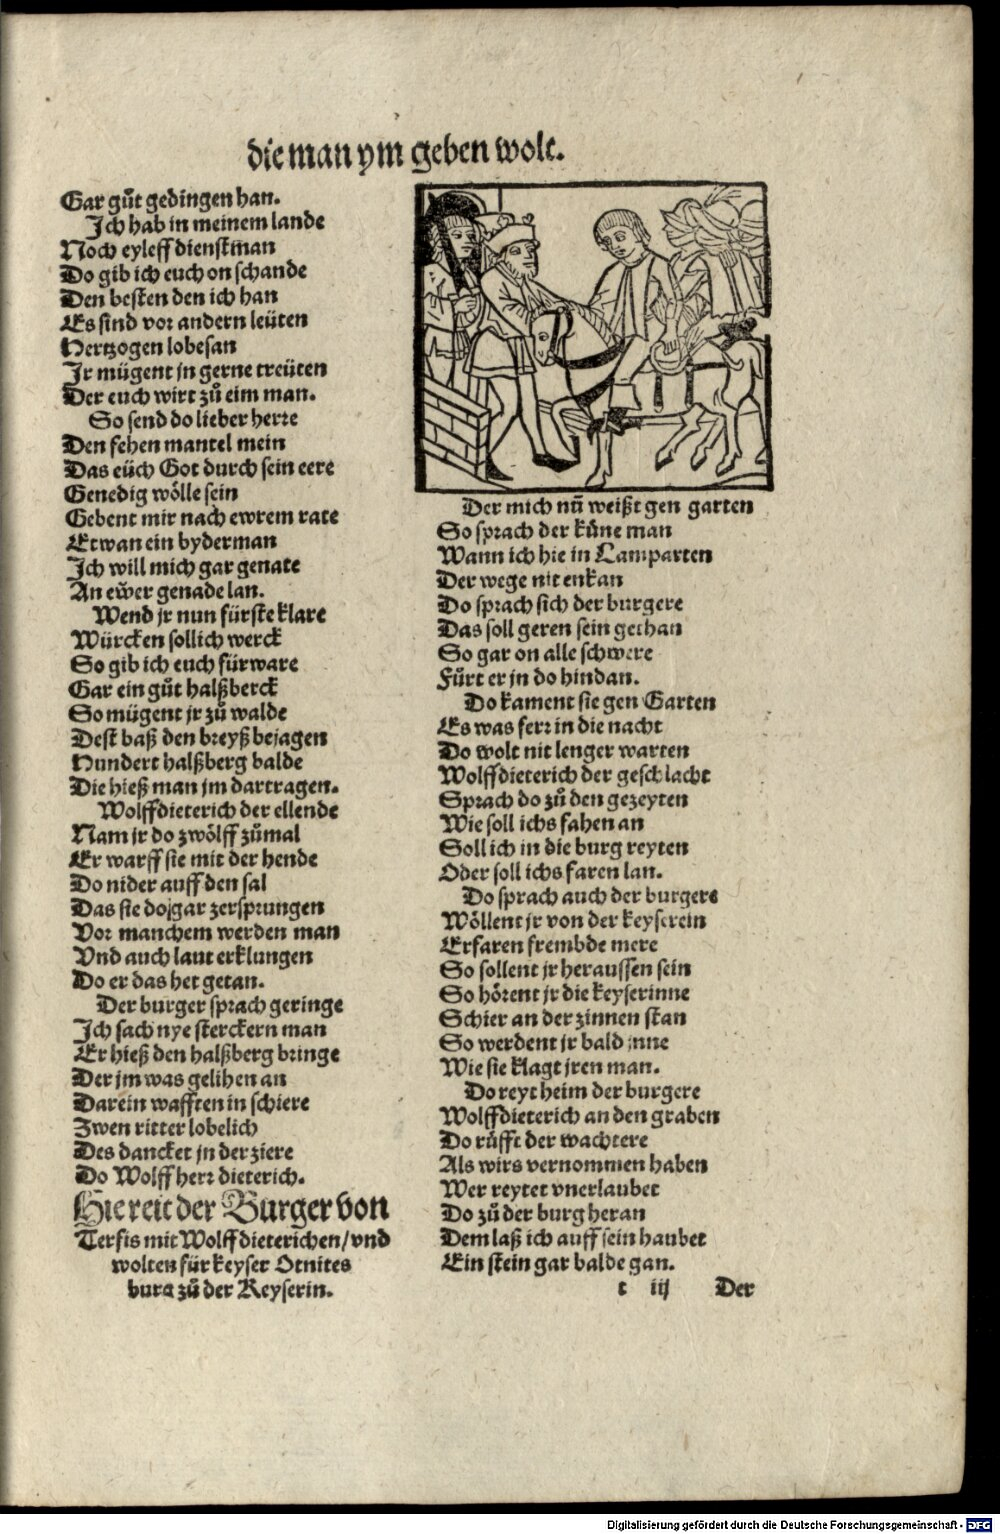 die man ym geben wolt.
Gar gůt gedingen han.
Ich hab in meinem lande
Noch eyleff dienstman
Do gib ich euch on schande
Den besten den ich han
Es sind vor andern leüten
Hertzogen lobesan
Ir mügent jn gerne treüten
Der euch wirt zů eim man.
So send do lieber herre
Den fehen mantel mein
Das eüch Got durch sein eere
Genedig wölle sein
Gebent mir nach ewrem rate
Etwan ein byderman
Ich will mich gar genate
An ewer genade lan.
Wend jr nun fürste klare
Würcken sollich werck
So gib ich euch fürware
Gar ein gůt halßberck
So mügent jr zů walde
Dest baß den breyß bejagen
Hundert halßberg balde
Die hieß man im dartragen.
Wolffdieterich der ellende
Nam jr do zwölff zůmal
Er warff sie mit der hende
Do nider auff den sal
Das sie do gar zersprungen
Vor manchem werden man
Vnd auch laut erklungen
Do er das het getan.
Der burger sprach geringe
Ich sach nye sterckern man
Er hieß den halßberg bringe
Der jm was gelihen an
Darein wafften in schiere
Zwen ritter lobelich
Des dancket jn der ziere
Do Wolff herr dieterich.
Hie reit der Burger von
Terfis mit Wolffdieterichen/vnd
wolten für keyser Otnites
burg zů der Keyserin.
Der mich nů weißt gen garten
So sprach der küne man
Wann ich hie in Lamparten
Der wege nit enkan
Do sprach sich der burgere
Das soll geren sein gethan
So gar on alle schwere
Fůrt er jn do hindan.
Do kament sie gen Garten
Es was ferr in die nacht
Do wolt nit lenger warten
Wolffdieterich der geschlacht
Sprach do zů den gezeyten
Wie soll ichs fahen an
Soll ich in die burg reyten
Oder soll ichs faren lan.
Do sprach auch der burgere
Wöllent jr von der keyserein
Erfaren frembde mere
So sollent jr heraussen sein
So hörent jr die keyserinne
Schier an der zinnen stan
So werdent jr bald inne
Wie sie klagt jren man.
Do reyt heim der burgere
Wolffdieterich an den graben
Do růfft der wachtere
Als wirs vernommen haben
Wer reytet vnerlaubet
Do zů der burg heran
Dem laß ich auff sein haubet
Ein stein gar balde gan.
t iij Der
Digitalisierung gefördert durch die Deutsche Forschungsgemeinschaft - DFG